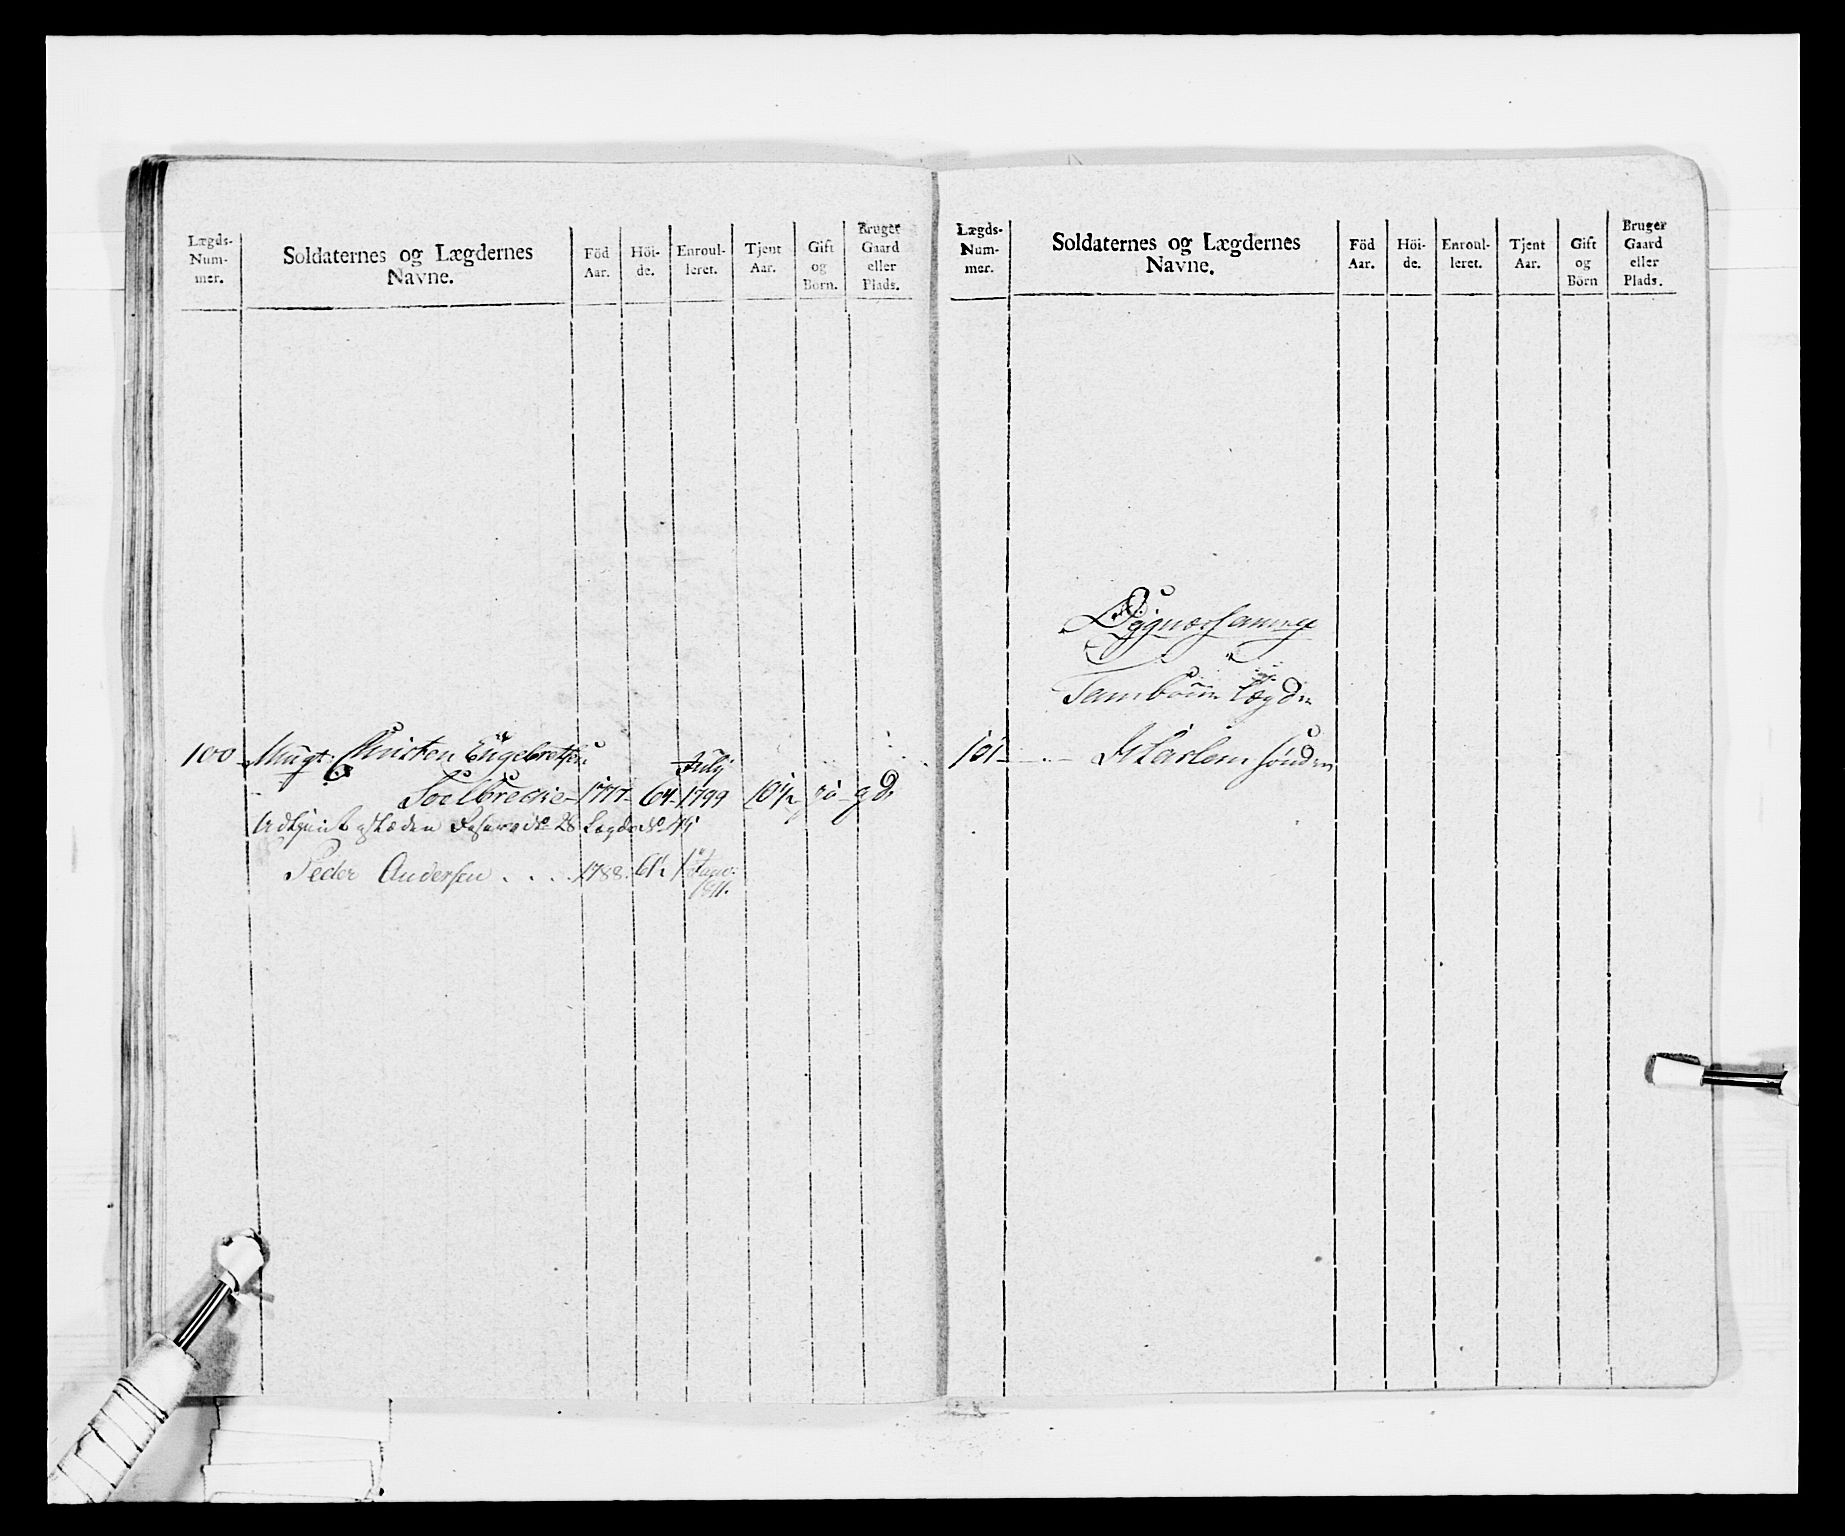 Lægds-
Num-
mer.
Soldaternes og Lægdernes
Navne.
Föd
Aar.
Höi-
de.
Enroul-
leret.
Tjent
Aar.
Gift
og
Börn.
Bruger
Gaard
eller
Plads.
100 Christen Engebretsen July
1777 64 1799 10½
28 Lægds No
Peder Andersen . . . 1788. 61½ 1 Janv.
1811.
Lægds-
Num-
mer.
Soldaternes og Lægdernes
Navne.
Föd
Aar.
Höi-
de.
Enroul-
leret.
Tjent
Aar.
Gift
og
Börn
Bruger
Gaard
eller
Plads.
Tambour Lægder
101 Harlem sönden